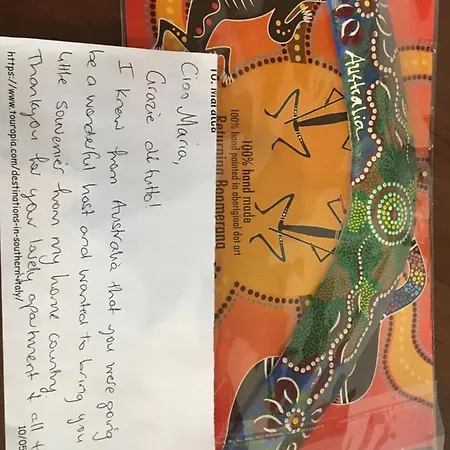 Ciao Maria,
Grazie di tutto!
I knew from Australia that you were going
be a wonderful host and wanted to bring you
little souvenir from my home country.
Thankyou for your lovely apartment & all
https://www.touropia.com/destinations-in-southern-italy/
10/05
Australia
100% hand made
100% hand painted in aboriginal dot art
Returning Boomerang